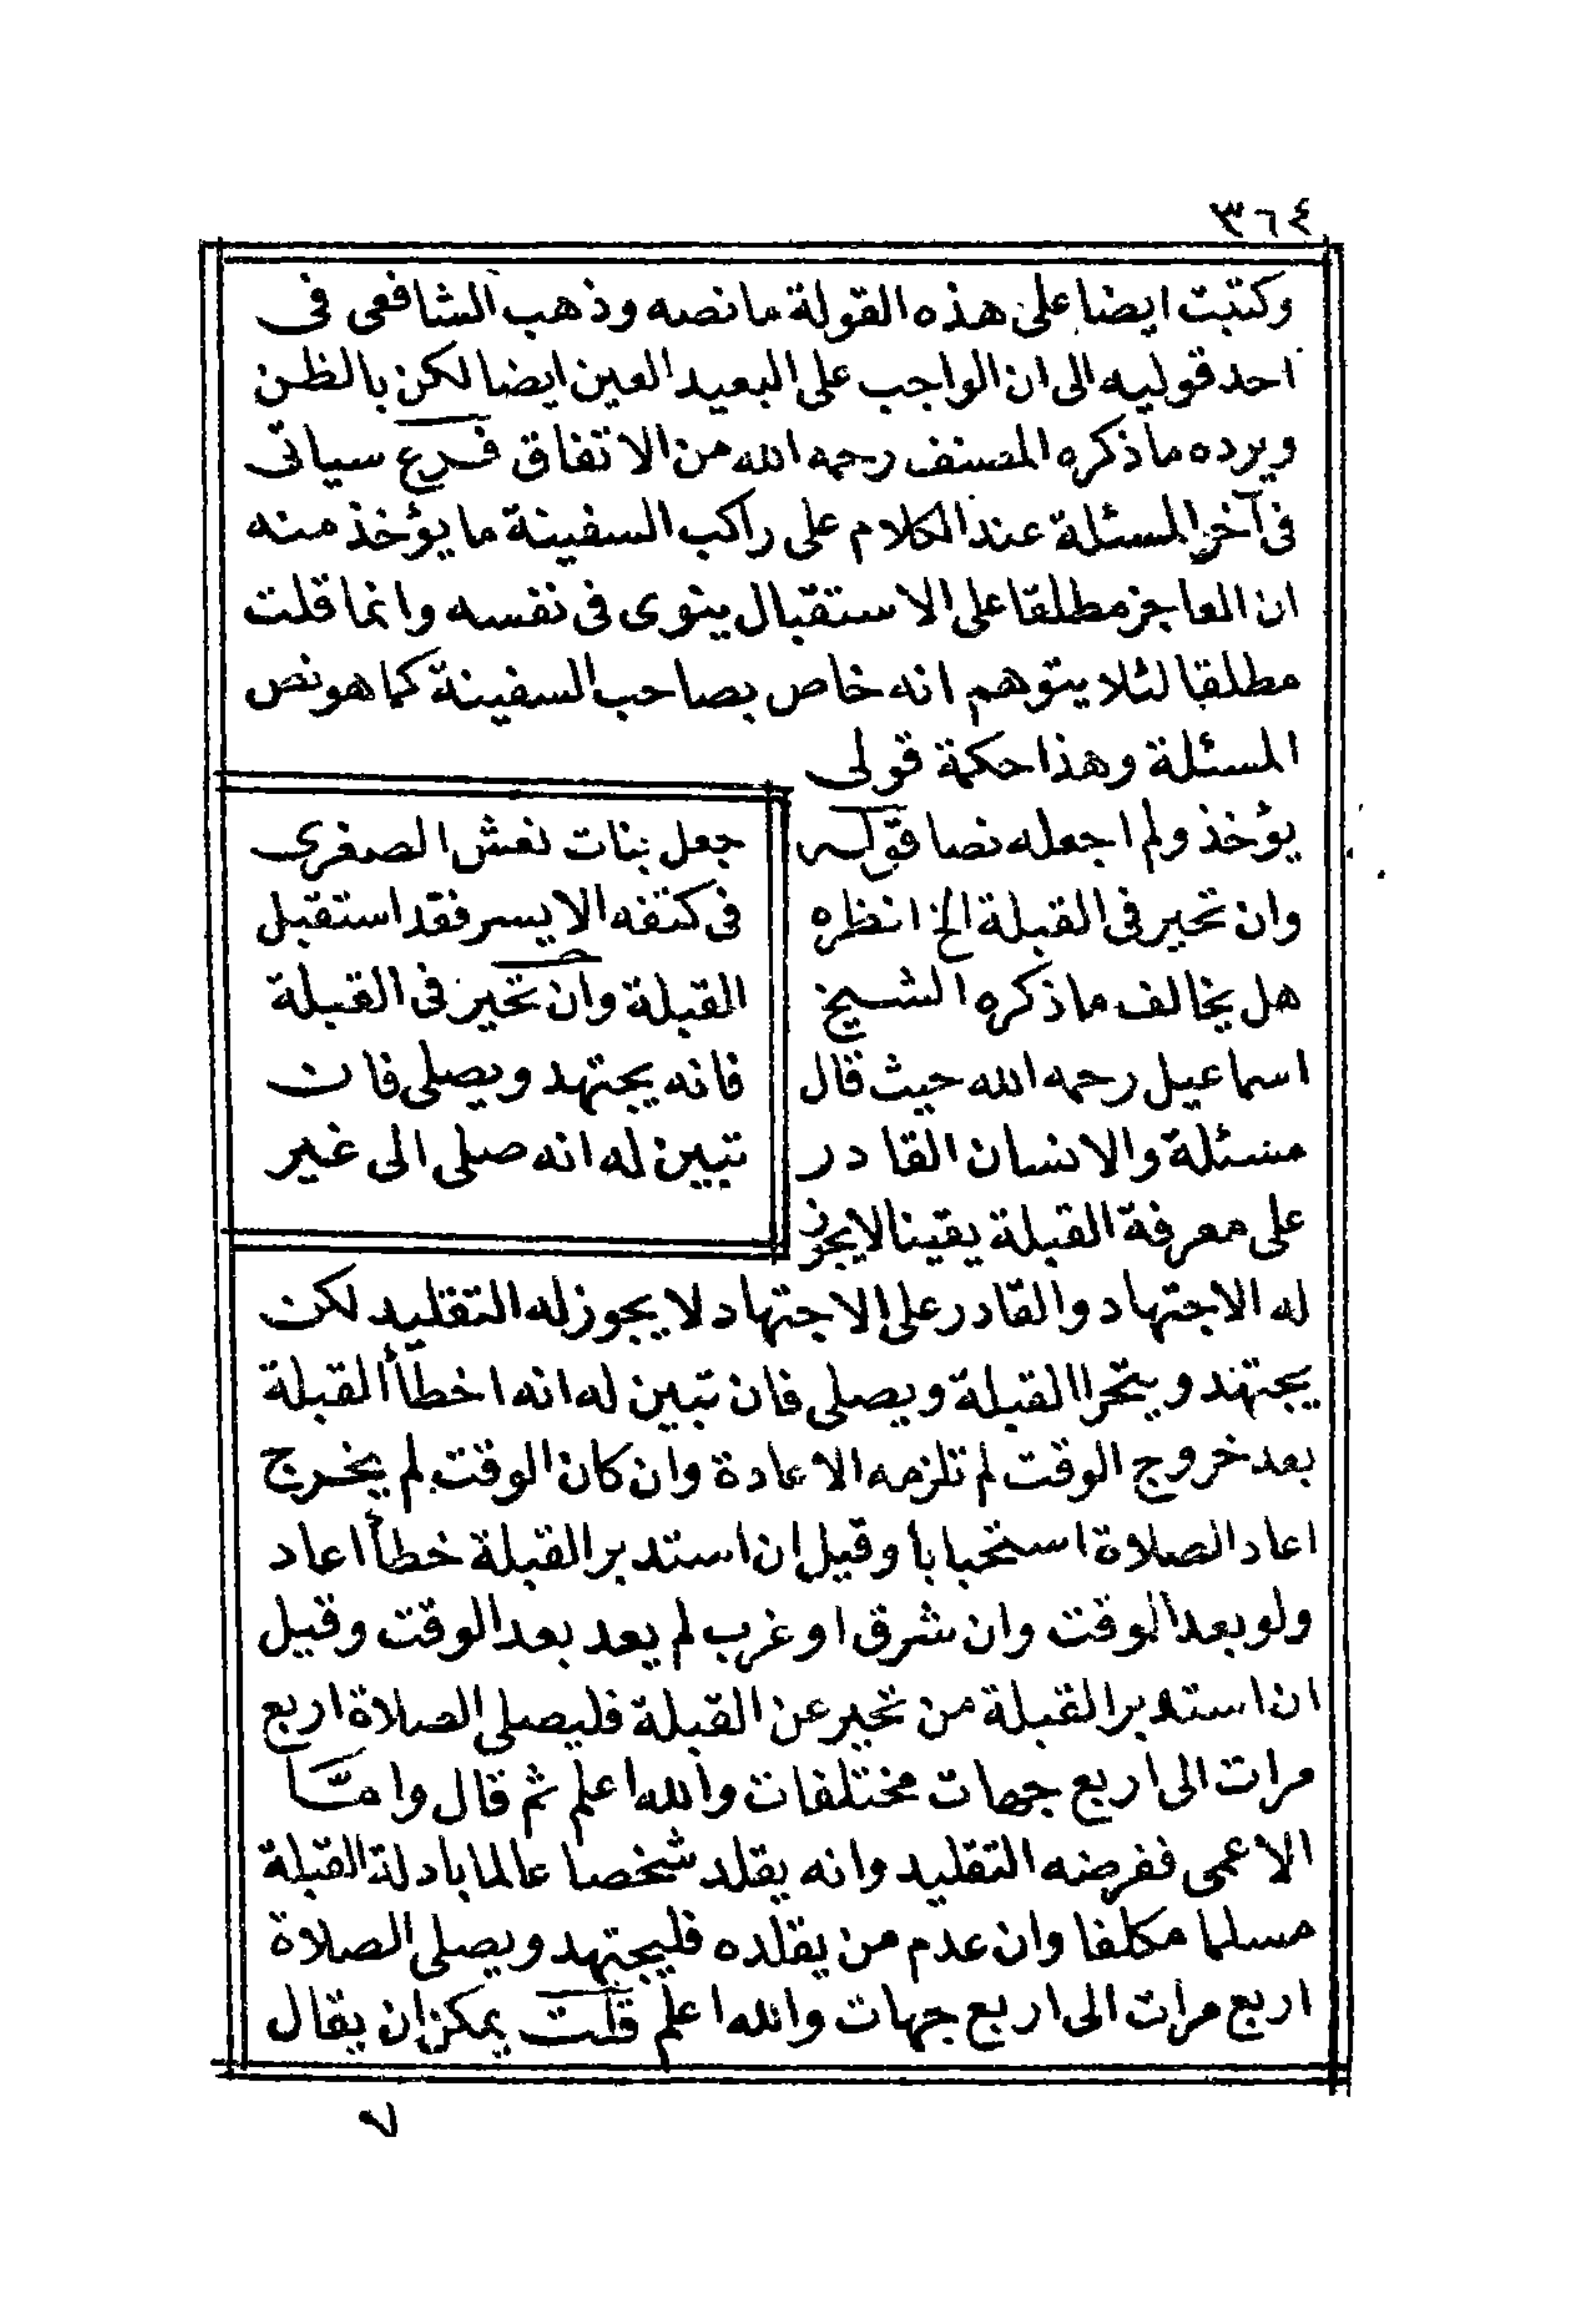 ٣٦٤
وكتبت ايضا على هذه القولة ما نصه وذهب الشافعى فى
احد قوليه الى ان الواجب على البعيد العين ايضا لكن بالظن
ويرده ما ذكره المصنف رحمه الله من الاتفاق فرع سياتى
فى آخر المسئلة عند الكلام على راكب السفينة ما يؤخذ منه
ان العاجز مطلقا على الاستقبال ينوى فى نفسه وانما قلت
مطلقا لئلا يتوهم انه خاص بصاحب السفينة كما هو نص
المسئلة وهذا حكمة قولى
يؤخذ ولم اجعله نصا قوله
وان تحير فى القبلة الخ انظره
هل يخالف ما ذكره الشيخ
اسماعيل رحمه الله حيث قال
مسئلة والانسان القادر
على معرفة القبلة يقينا لايجوز
له الاجتهاد والقادر على الاجتهاد لا يجوز له التقليد لكن
يجتهد ويتحرا القبلة ويصلى فان تبين له انه اخطأ القبلة
بعد خروج الوقت لم تلزمه الاعادة وان كان الوقت لم يخرج
اعاد الصلاة استحبابا وقيل ان استدبر القبلة خطأ اعاد
ولو بعد الوقت وان شرق او غرب لم يعد بعد الوقت وقيل
ان استدبر القبلة من تحير عن القبلة فليصلى الصلاة اربع
مرات الى اربع جهات مختلفات والله اعلم ثم قال وامّا
الاعمى ففرضه التقليد وانه يقلد شخصا عالما بادلة القبلة
مسلما مكلفا وان عدم من يقلده فليجتهد ويصلى الصلاة
اربع مرات الى اربع جهات والله اعلم قلت يمكن ان يقال
جعل بنات نعش الصغرى
فى كتفه الايسر فقد استقبل
القبلة وان تحير فى القبلة
فانه يجتهد ويصلى فان
تبين له انه صلى الى غير